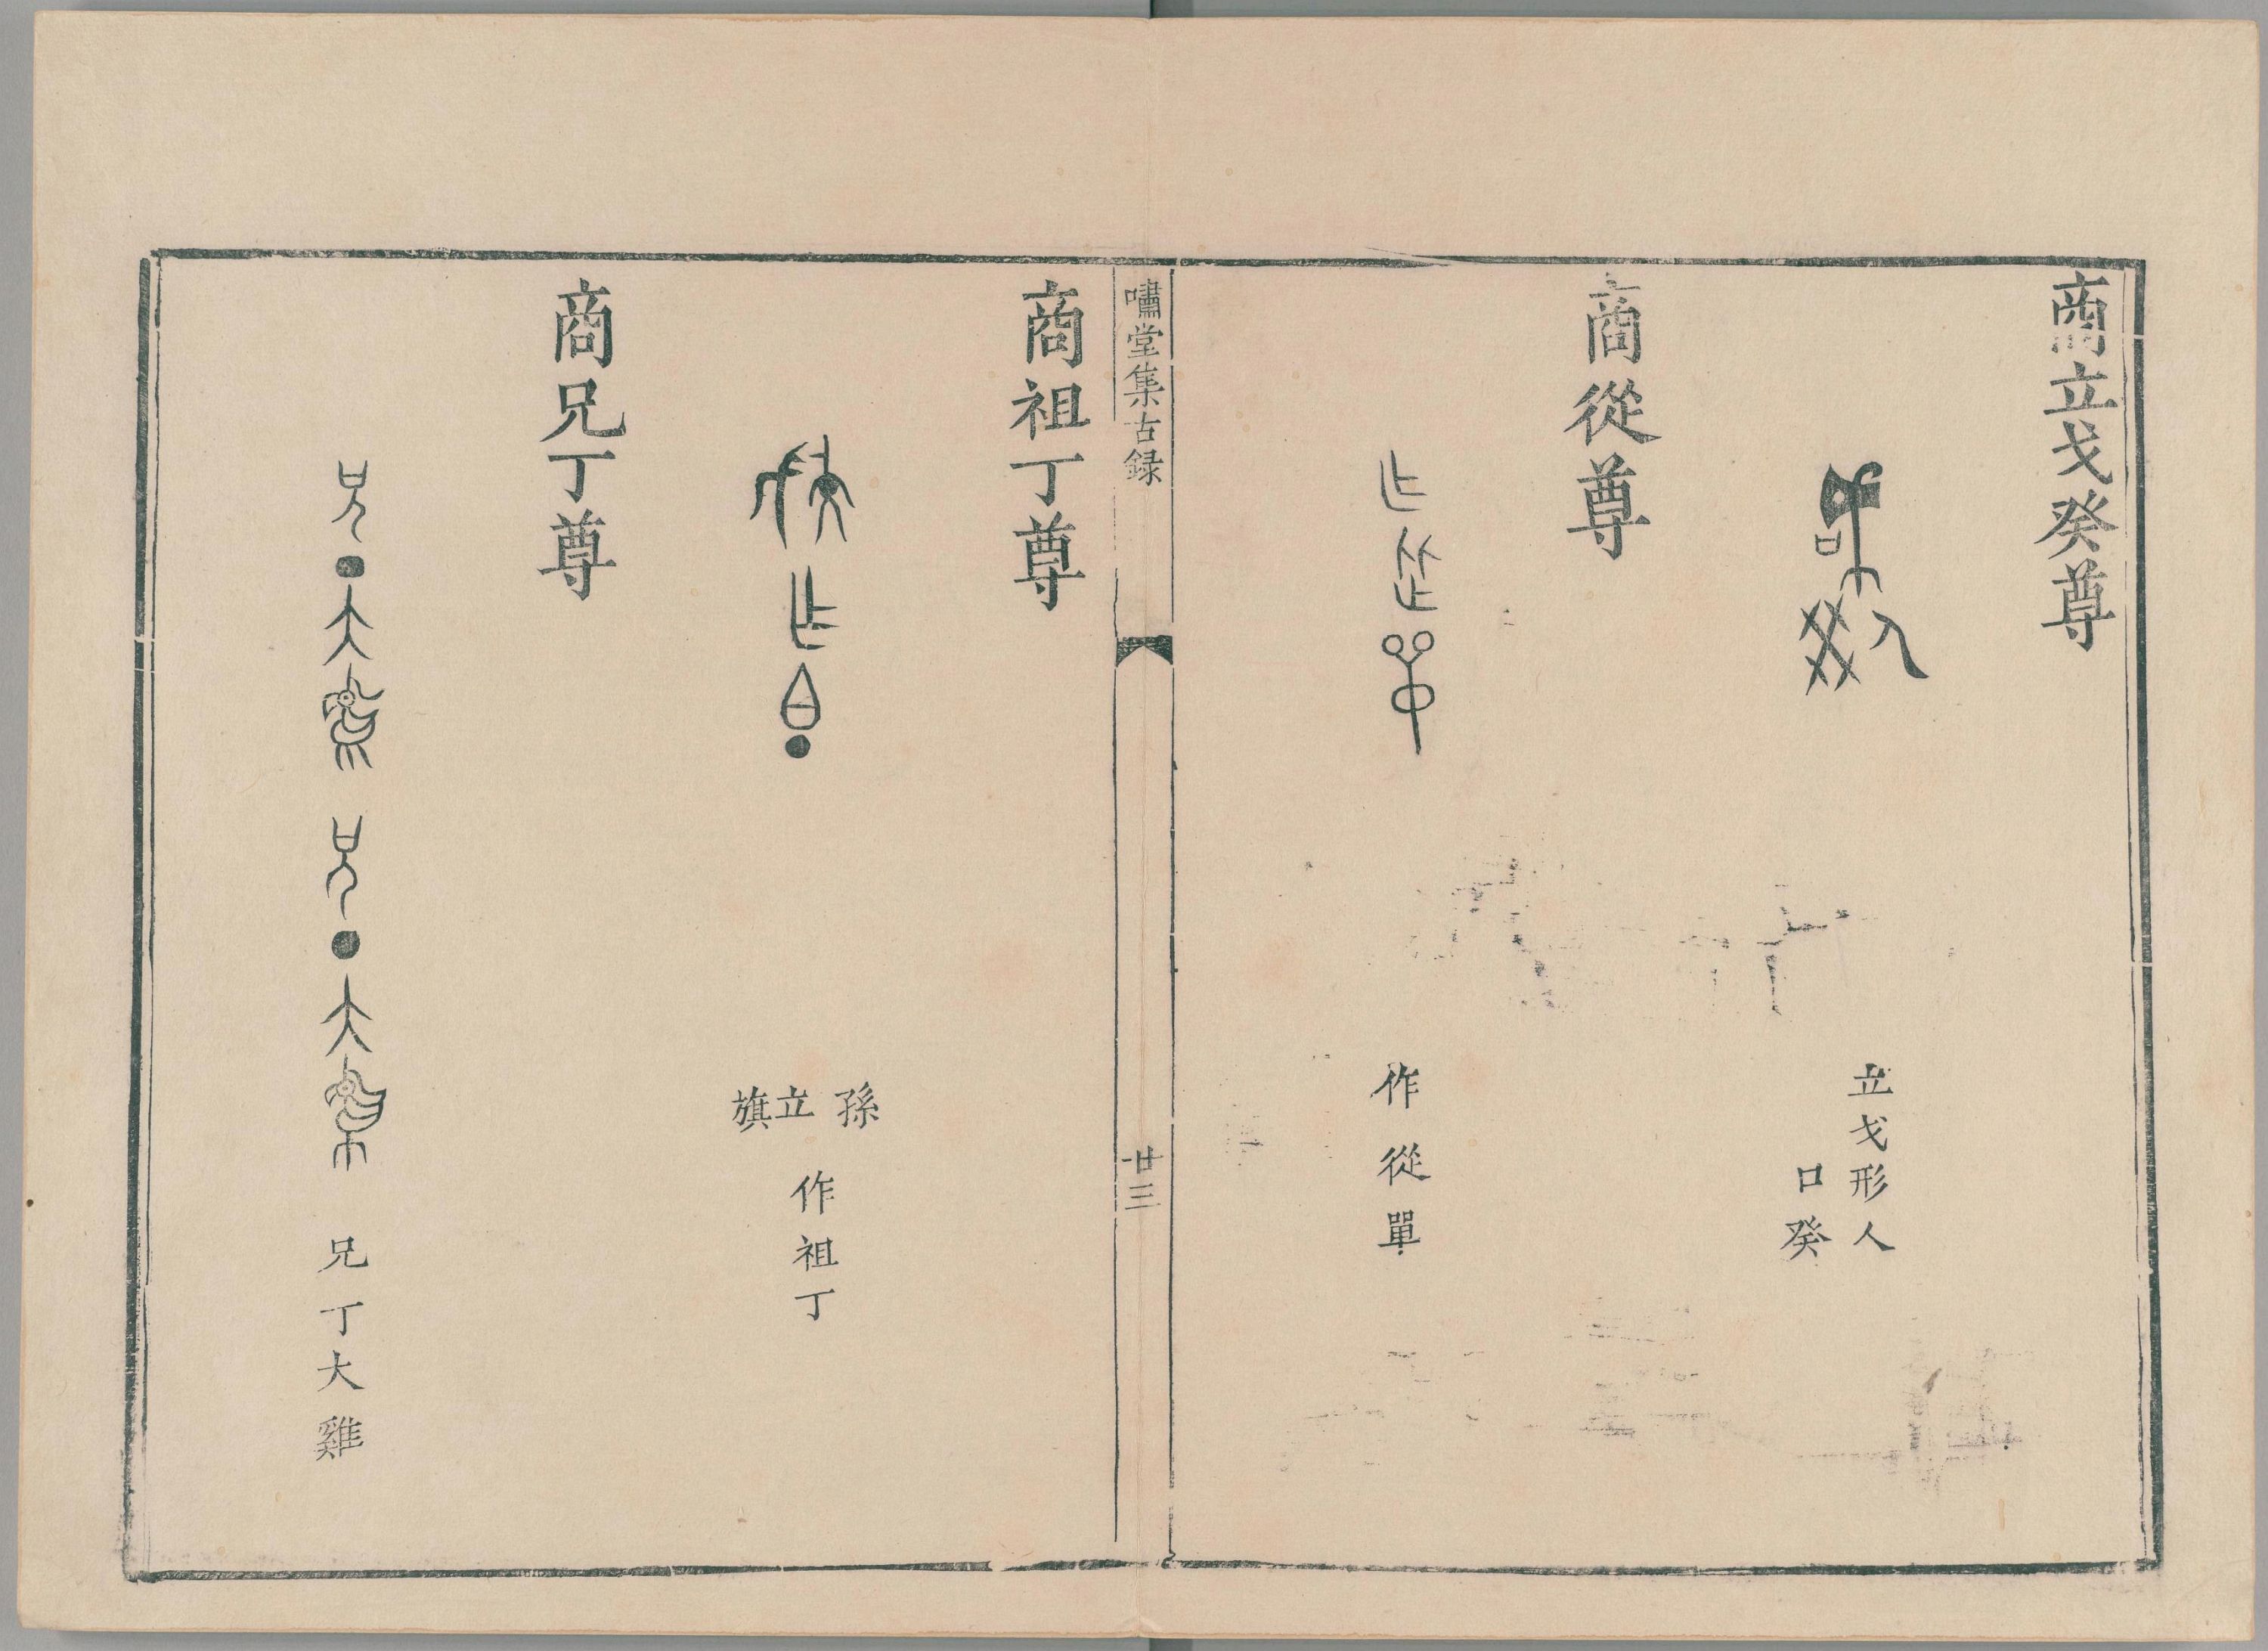 商立戈癸尊
立戈形人
口癸
商從尊
作從單
嘯堂集古録
廿三
商祖丁尊
孫
立
旗
作祖丁
商兄丁尊
兄丁大雞